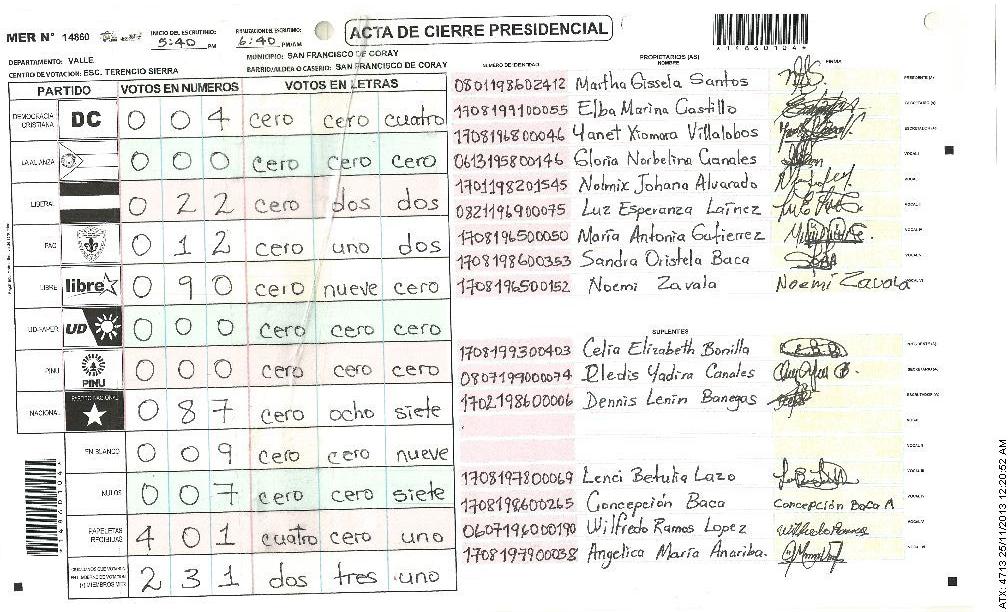 MER N° 14860
INICIO DEL ESCRUTINIO: 5:40 PM
6:40 PM/AM
ACTA DE CIERRE PRESIDENCIAL
*14860104*
DEPARTAMENTO: VALLE.
MUNICIPIO: SAN FRANCISCO DE CORAY
CENTRO DE VOTACION: ESC. TERENCIO SIERRA
BARRIO/ALDEA O CASERIO: SAN FRANCISCO DE CORAY
PARTIDO VOTOS EN NUMEROS VOTOS EN LETRAS
DEMOCRACIA CRISTIANA DC 0 0 4 cero cero cuatro
LA ALIANZA 0 0 0 cero cero cero
LIBERAL 0 2 2 cero dos dos
PAC 0 1 2 cero uno dos
LIBRE libre 0 9 0 cero nueve cero
UD-FAPER UD 0 0 0 cero cero cero
PINU PINU 0 0 0 cero cero cero
NACIONAL PARTIDO NACIONAL 0 8 7 cero ocho siete
EN BLANCO 0 0 9 cero cero nueve
NULOS 0 0 7 cero cero siete
PAPELETAS RECIBIDAS 4 0 1 cuatro cero uno
2 3 1 dos tres uno
*14860104*
NUMERO DE IDENTIDAD PROPIETARIOS (AS) NOMBRE FIRMA
0801198602412 Martha Gissela Santos PRESIDENTE (A)
1708199100055 Elba Marina Castillo SECRETARIO (A)
1708196800046 Yanet Xiomara Villalobos ESCRUTADOR (A)
0613195800146 Gloria Norbelina Canales VOCAL I
1701198201545 Nolmix Johana Alvarado
0821196900075 Luz Esperanza Laínez
1708196500050 María Antonia Gutierrez
1708198600353 Sandra Oristela Baca
1708196500152 Noemi Zavala Noemi Zavala
SUPLENTES
1708199300403 Celia Elizabeth Bonilla
0807199000074 Dledis Yadira Canales SECRETARIO (A)
1702198600006 Dennis Lenin Banegas ESCRUTADOR (A)
1708197800069 Lenci Betulia Lazo
1708198600265 Concepción Baca Concepción Baca A
0607196000190 Wilfredo Ramos Lopez Wilfredo Ramos
1708197900038 Angelica María Anariba.
ATX: 4713 25/11/2013 12:20:52 AM